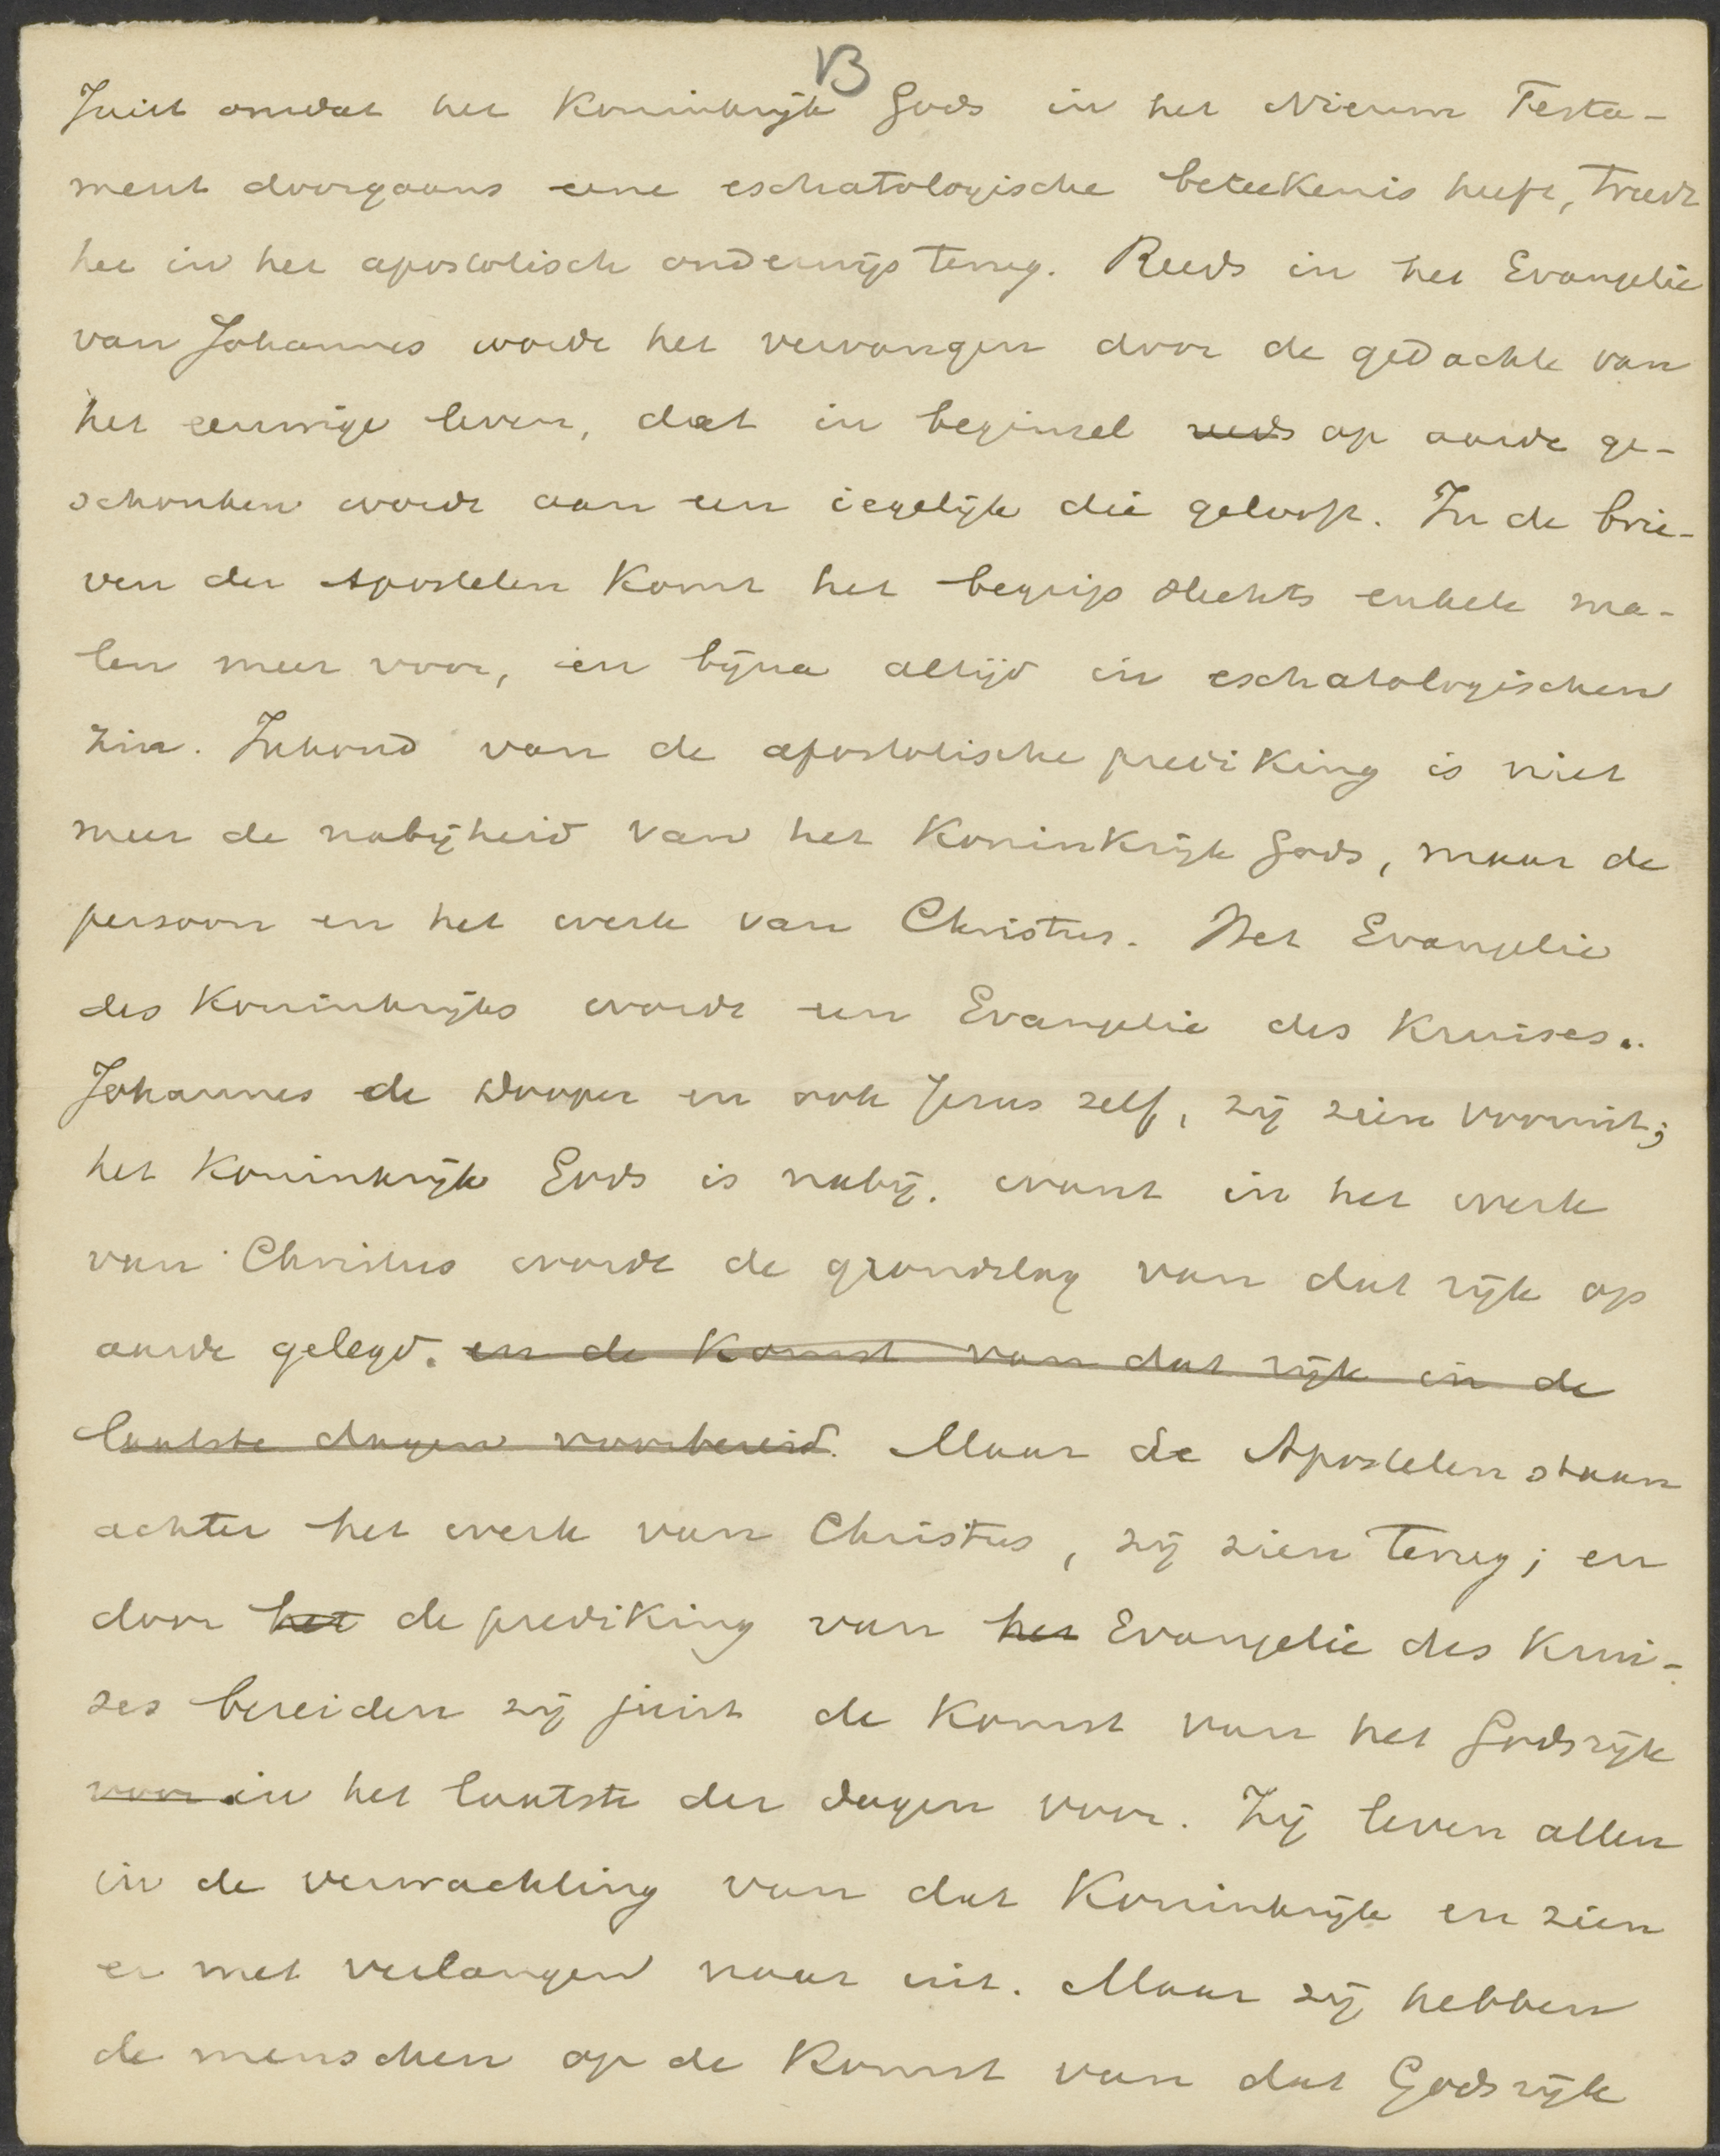 13
Juist omdat het Koninkrijk Gods in het Nieuwe Testa-
ment doorgaans eene eschatologische beteekenis heeft, treedt
het in het apostolisch onderwijs terug. Reeds in het Evangelie
van Johannes wordt het vervangen door de gedachte van
het eeuwige leven, dat in beginsel reeds op aarde ge-
schonken wordt aan een iegelijk die gelooft. In de brie-
ven der Apostelen komt het begrip slechts enkele ma-
len meer voor, en bijna altijd in eschatologischen
zin. Inhoud van de apostolische prediking is niet
meer de nabijheid van het Koninkrijk Gods, maar de
persoon en het werk van Christus. Het Evangelie
des Koninkrijks wordt een Evangelie des Kruises..
Johannes de Dooper en ook Jezus zelf, zij zien vooruit;
het Koninkrijk Gods is nabij. want in het werk
van Christus wordt de grondslag van dat rijk op
aarde gelegd. en de Komst van dat rijk in de
laatste dagen voorbereid. Maar de Apostelen staan
achter het werk van Christus, zij zien terug; en
door het de prediking van het Evangelie des Krui-
ses bereiden zij juist de Komst van het Godsrijk
voor in het laatste der dagen voor. Zij leven allen
in de verwachting van dat Koninkrijk en zien
er met verlangen naar uit. Maar zij hebben
de menschen op de Komst van dat Godsrijk